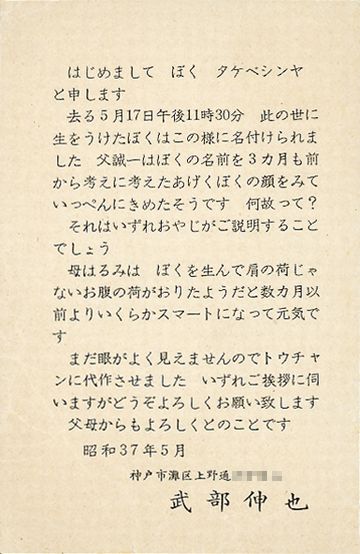 はじめまして　ぼく　タケベシンヤ
と申します
去る5月17日午後11時30分　此の世に
生をうけたぼくはこの様に名付けられま
した　父誠一はぼくの名前を3カ月も前
から考えに考えたあげくぼくの顔をみて
いっぺんにきめたそうです　何故って？
それはいずれおやじがご説明すること
でしょう
母はるみは　ぼくを生んで肩の荷じゃ
ないお腹の荷がおりたようだと数カ月以
前よりいくらかスマートになって元気で
す
まだ眼がよく見えませんのでトウチャ
ンに代作させました　いずれご挨拶に伺
いますがどうぞよろしくお願い致します
父母からもよろしくとのことです
昭和37年5月
神戸市灘区上野通
武部伸也